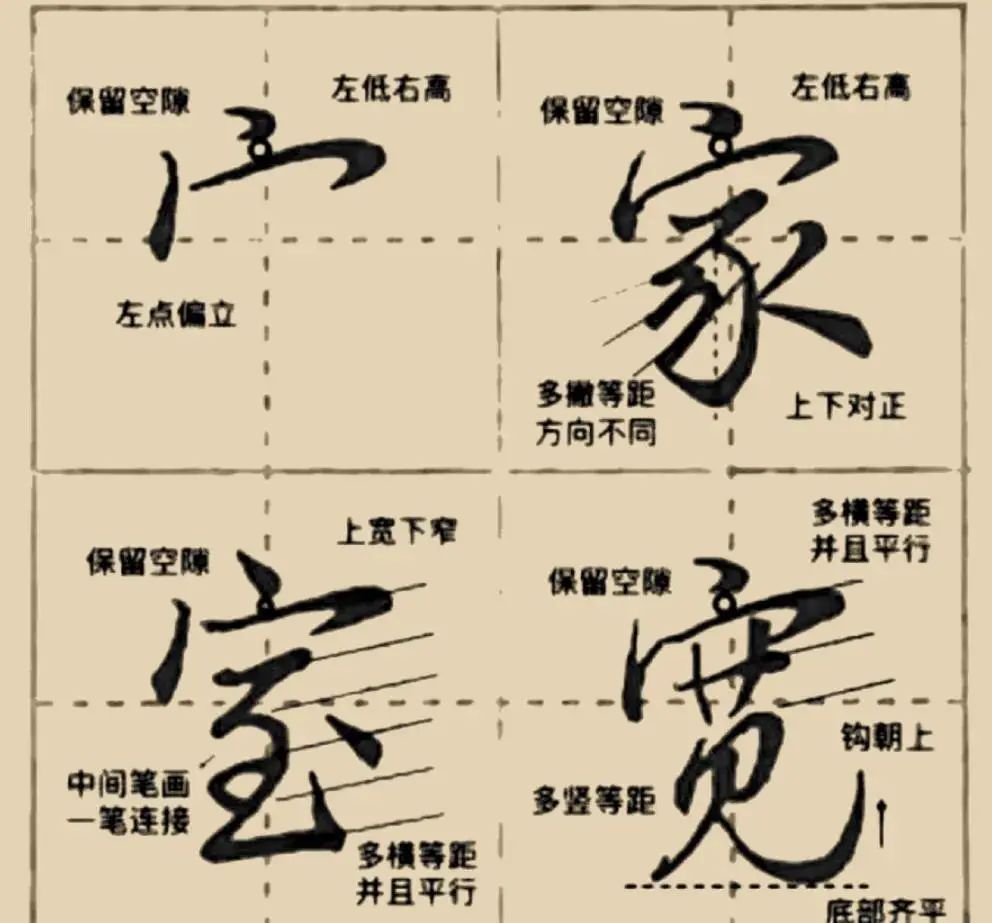 保留空隙
左低右高
宀
左点偏立
保留空隙
左低右高
家
多撇等距
方向不同
上下对正
保留空隙
上宽下窄
宝
中间笔画
一笔连接
多横等距
并且平行
多横等距
并且平行
保留空隙
宽
钩朝上
多竖等距
底部齐平